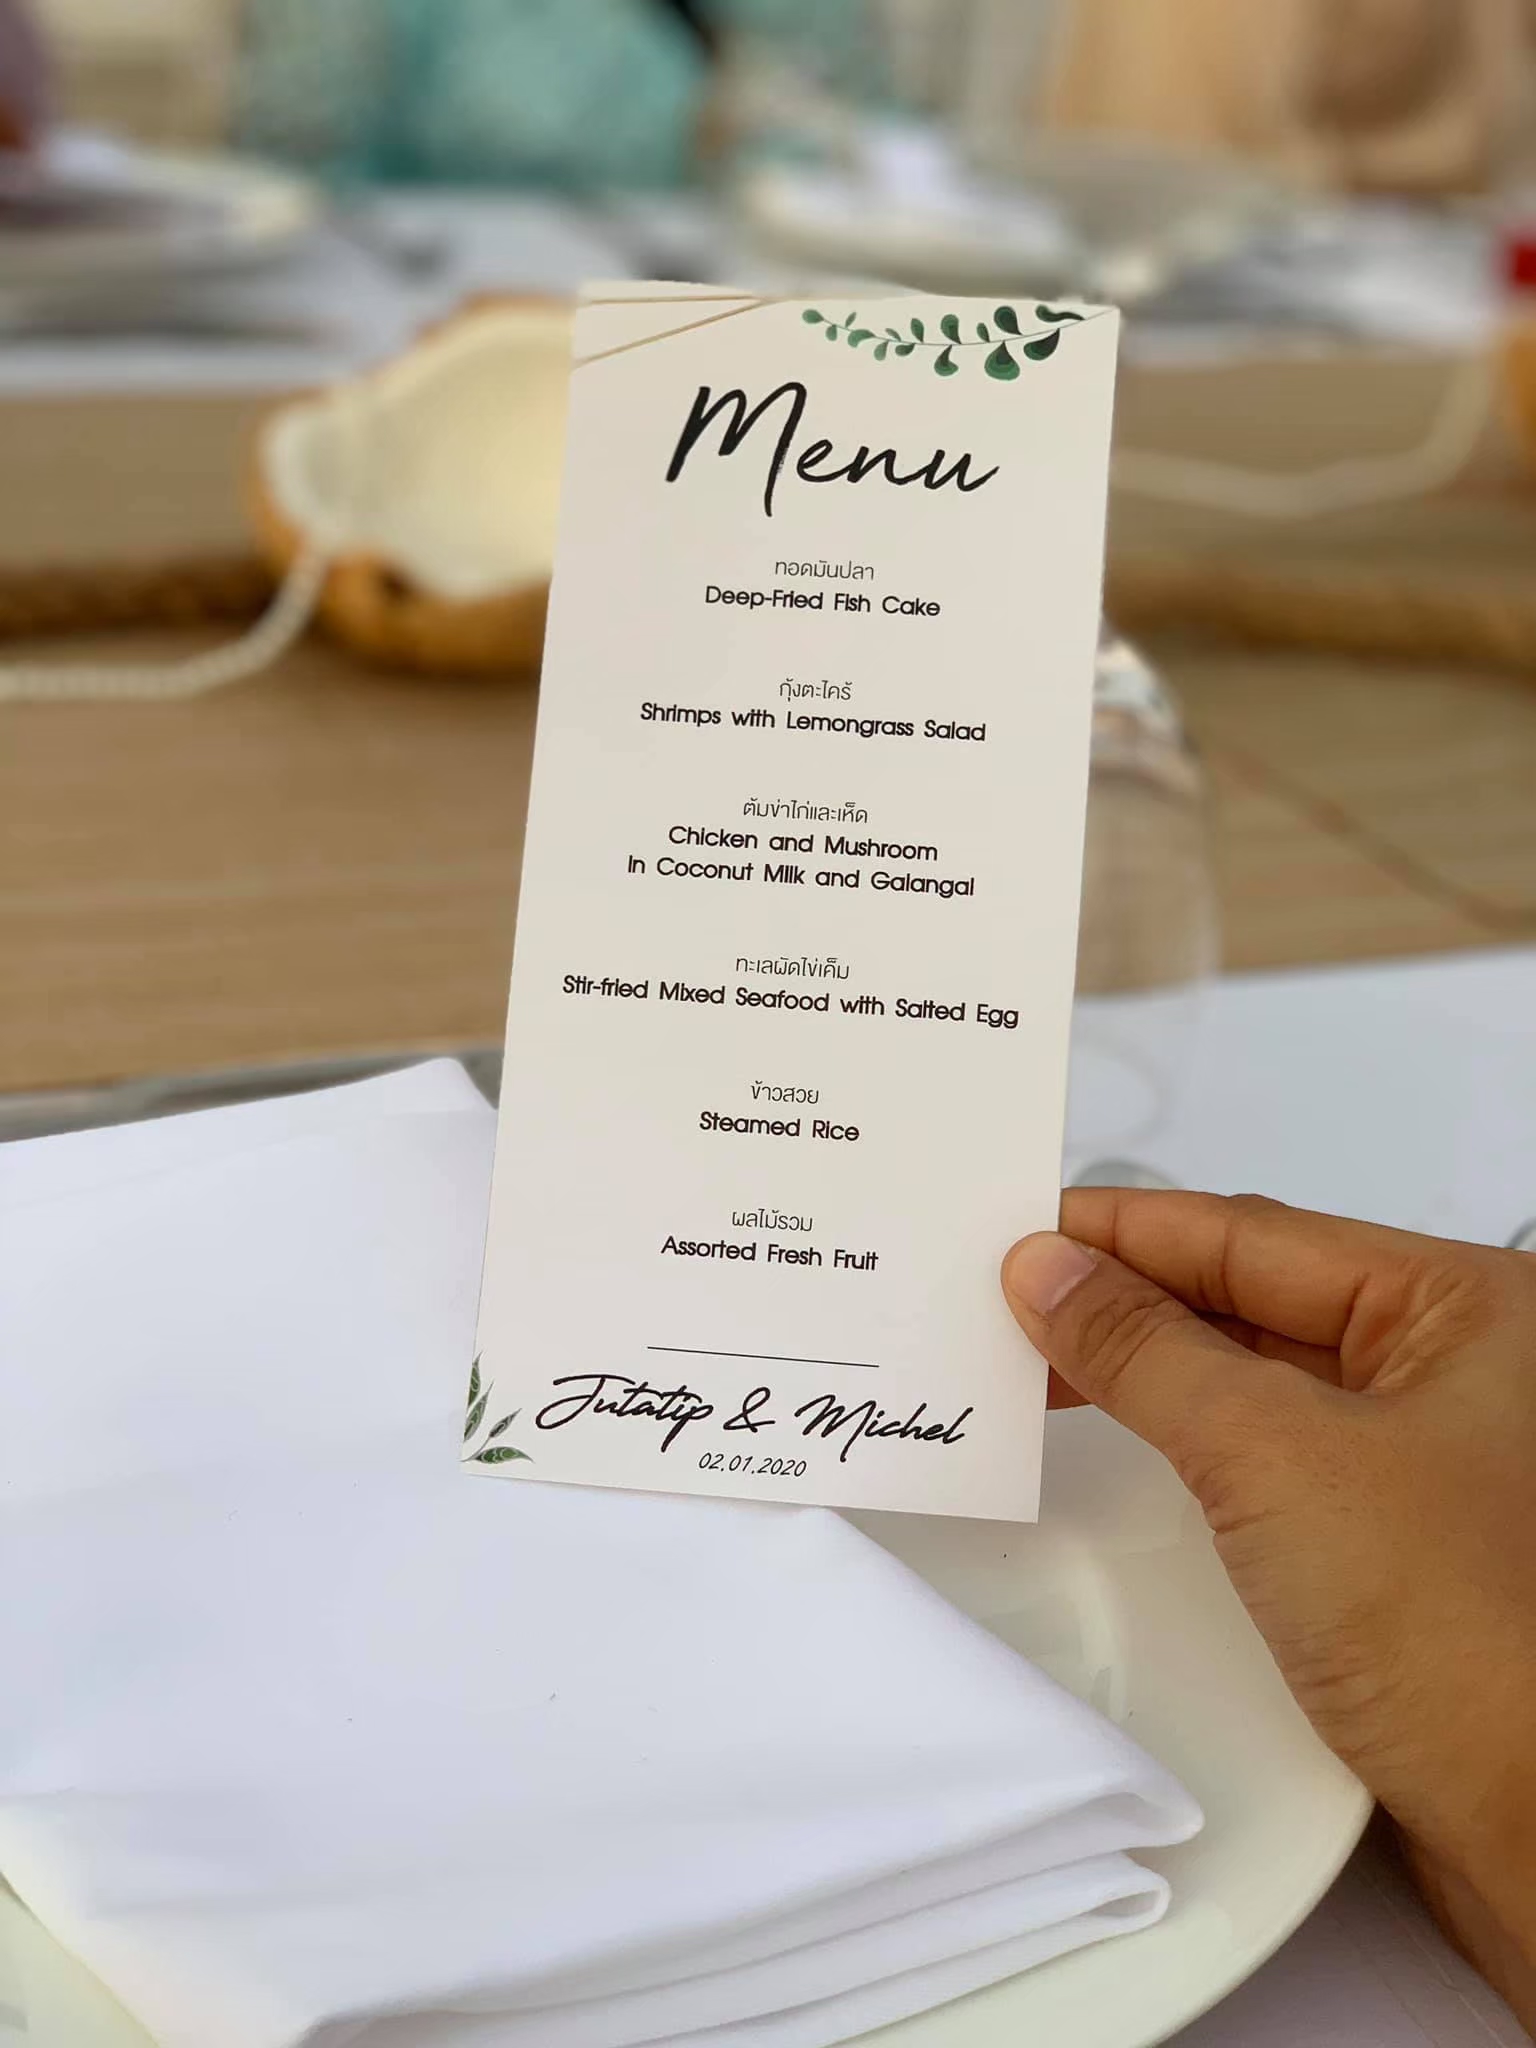 Menu
ทอดมันปลา
Deep-Fried Fish Cake
กุ้งตะไคร้
Shrimps with Lemongrass Salad
ต้มข่าไก่และเห็ด
Chicken and Mushroom
in Coconut Milk and Galangal
ทะเลผัดไข่เค็ม
Stir-fried Mixed Seafood with Salted Egg
ข้าวสวย
Steamed Rice
ผลไม้รวม
Assorted Fresh Fruit
Jutatip & Michel
02.01.2020